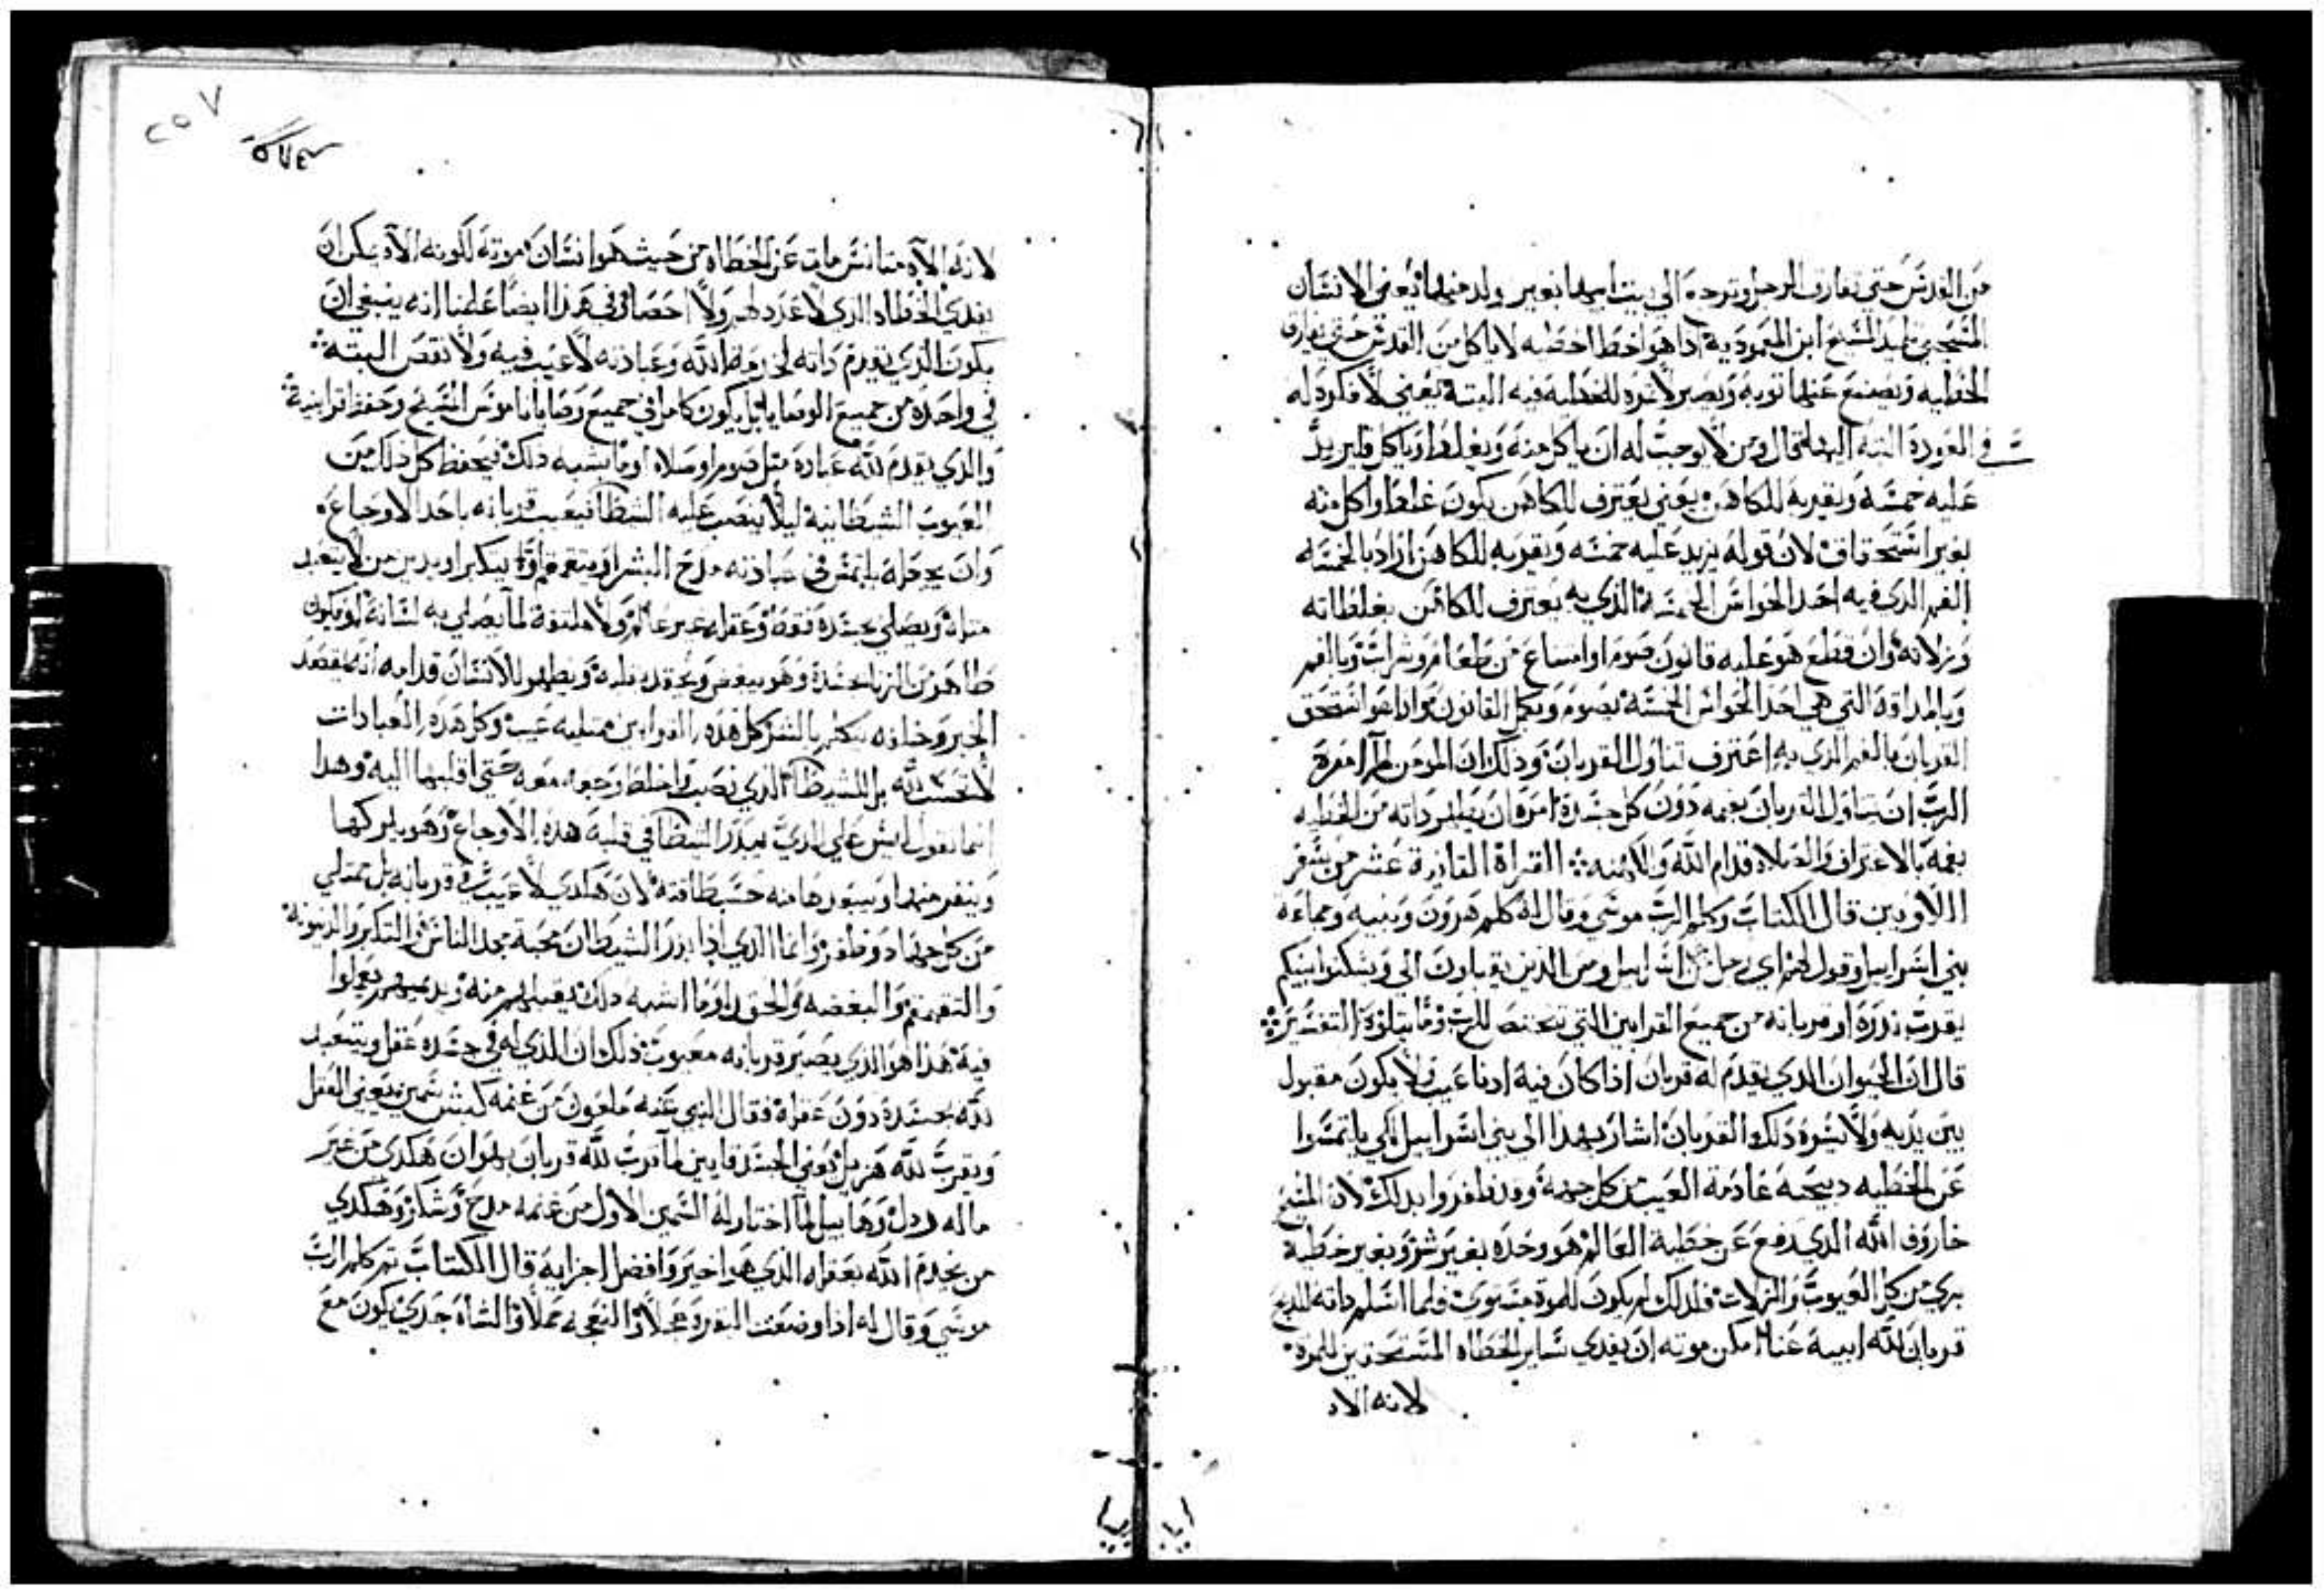 من القدس حتي تفارق الرجل وتوجه الي بيت ابيها بغير ولد منها يعني الانسان
المسيحي تلميد المسيح ابن المعمودية ادا هو اخطا خطيه لا ياكل من القدس حتي يفارق
الخطيه ويصنع عنها توبة ويصير لا شره للخطية فيه البتة يعني لا فكر له
في العودة البتة اليها قال ومن لا يوجب له ان ياكل منه ويغلط وياكل فليزيد
عليه خمسة ويقربه للكاهن يعني يعترف للكاهن بكون غلط واكل منه
بغير استحقاق لان قوله يزيد عليه خمسه ويقربه للكاهن اراد بالخمسه
الفم الدي فيه احد الحواس الخمسة الذي به يعترف للكاهن بغلطاته
وزلاته وان قطع هو عليه قانون صوم او امتناع من طعام وشراب وبالفم
وبالمداقة التي هي احد الحواس الخمسة يصوم ويكمل القانون
القربان بالفم الدي به اعترف تناول القربان ودلك ان المومن لما امره
الرب ان يتناول القربان بفمه دون كل جسده امره ان يطهر داته من الخطيه
بفمه بالاعتراف والصلاه قدام الله والكهنه القراة عشر من سفر
اللاويين قال الكتاب وكلم الرب موسي وقال له كلم هرون وبنيه وجماعة
بني اسراييل وقول لهم اي رجل من اسراييل ومن الدين يقبلون الي ويسكنوا بينكم
يقرب ندره او قربانه من جميع القرابين التي تختص للرب وما يتلوه التفسير
قال ان الحيوان الدي يقدم له قربان اذا كان فيه ادنا عيب لا يكون مقبول
بين يديه ولا يشوه دلك القربان اشار بهدا الي بني اسراييل لكي يلتمسوا
عن الخطيه دبيحه عادمة العيب من كل جهة ولم يظفروا بدلك لان المسيح
خاروف الله الدي رفع عن خطية العالم هو وحده بغير شر وبغير خطية
بري من كل العيوب والزلات فلدلك لم يكون للموت مستوجب ولما اسلم داته للدبح
قربان لله ابيه عنا امكن موته ان يفدي ساير الخطاه المستحقين للموت
لانه الاه
٢٥٧
لانه الاه متانس مات عن الخطاه من حيث هو انسان موته لكونه الاه يمكن ان
يفدي الخطاه الدي لا عدد لهم ولا احصا وفي هدا ايضا علمنا انه ينبغي ان
يكون الذي يقدم داته لخدمة الله وعبادته لا عيب فيه ولا نقص البتة
في واحدة من جميع الوصايا بل يكون كامل في جميع وصايا ناموس المسيح وحفظ قرابينه
والدي يقدم لله عبادة مثل صوم او صلاه او ما يشبه دلك فيحفظ كل دلك من
العيوب الشيطانية ليلا ينصب عليه الشيطان فيعيب قربانه باحد الاوجاع
وان يجعله يلتمس في عبادته مدح البشر او يتكبر او يدين من لا يتعبد
مثله ويصلي بجسده فقط وعقله غير عالم ولا ملتفت لما يصلي به لسانه او يكون
طاهر من الزنا بجسده وهو يبغض ويحقد بقلبه ويظهر للانسان قدامه انه يقصد
الخير كل هده القرابين ممتليه عيب وكل هده العبادات
لا تحسب لله بل للشيطان الذي نصب معه حتي اقلبها اليه وهدا
انما نقول ليس علي الدي يبدر الشيطان في قلبه هده الاوجاع وهو يكرهها
وينفر منها ويبعدها منه حسب طاقته لان هكدي لا عيب في قربانه بل ممتلي
من كل جهاد وظفر وانما الدي اذا بدر الشيطان محبة مجد الناس والتكبر والدينونة
والبغضه والحقد وما اشبه دلك يقبلهم منه
فيه هدا هو الدي يصير قربانه معيوب ذلك ان الذي له في جسده عقل ويتعبد
لله بجسده دون عقله فقال النبي عنه ملعون من غنمه كبش سمين يعني العقل
ويقرب لله هزيل يعني الجسد قايين لما قرب لله قربان هكدي من غير
ماله ردل وهابيل لما اختار له السمين الاول من غنمه مدح وشكر وهكدي
من يخدم الله بعقله الذي هو اخير وافضل اجزايه قال الكتاب ثم كلم الرب
موسي وقال له ادا وضعت البقرة عجلا والنعجه حملا والشاة جدي يكون مع